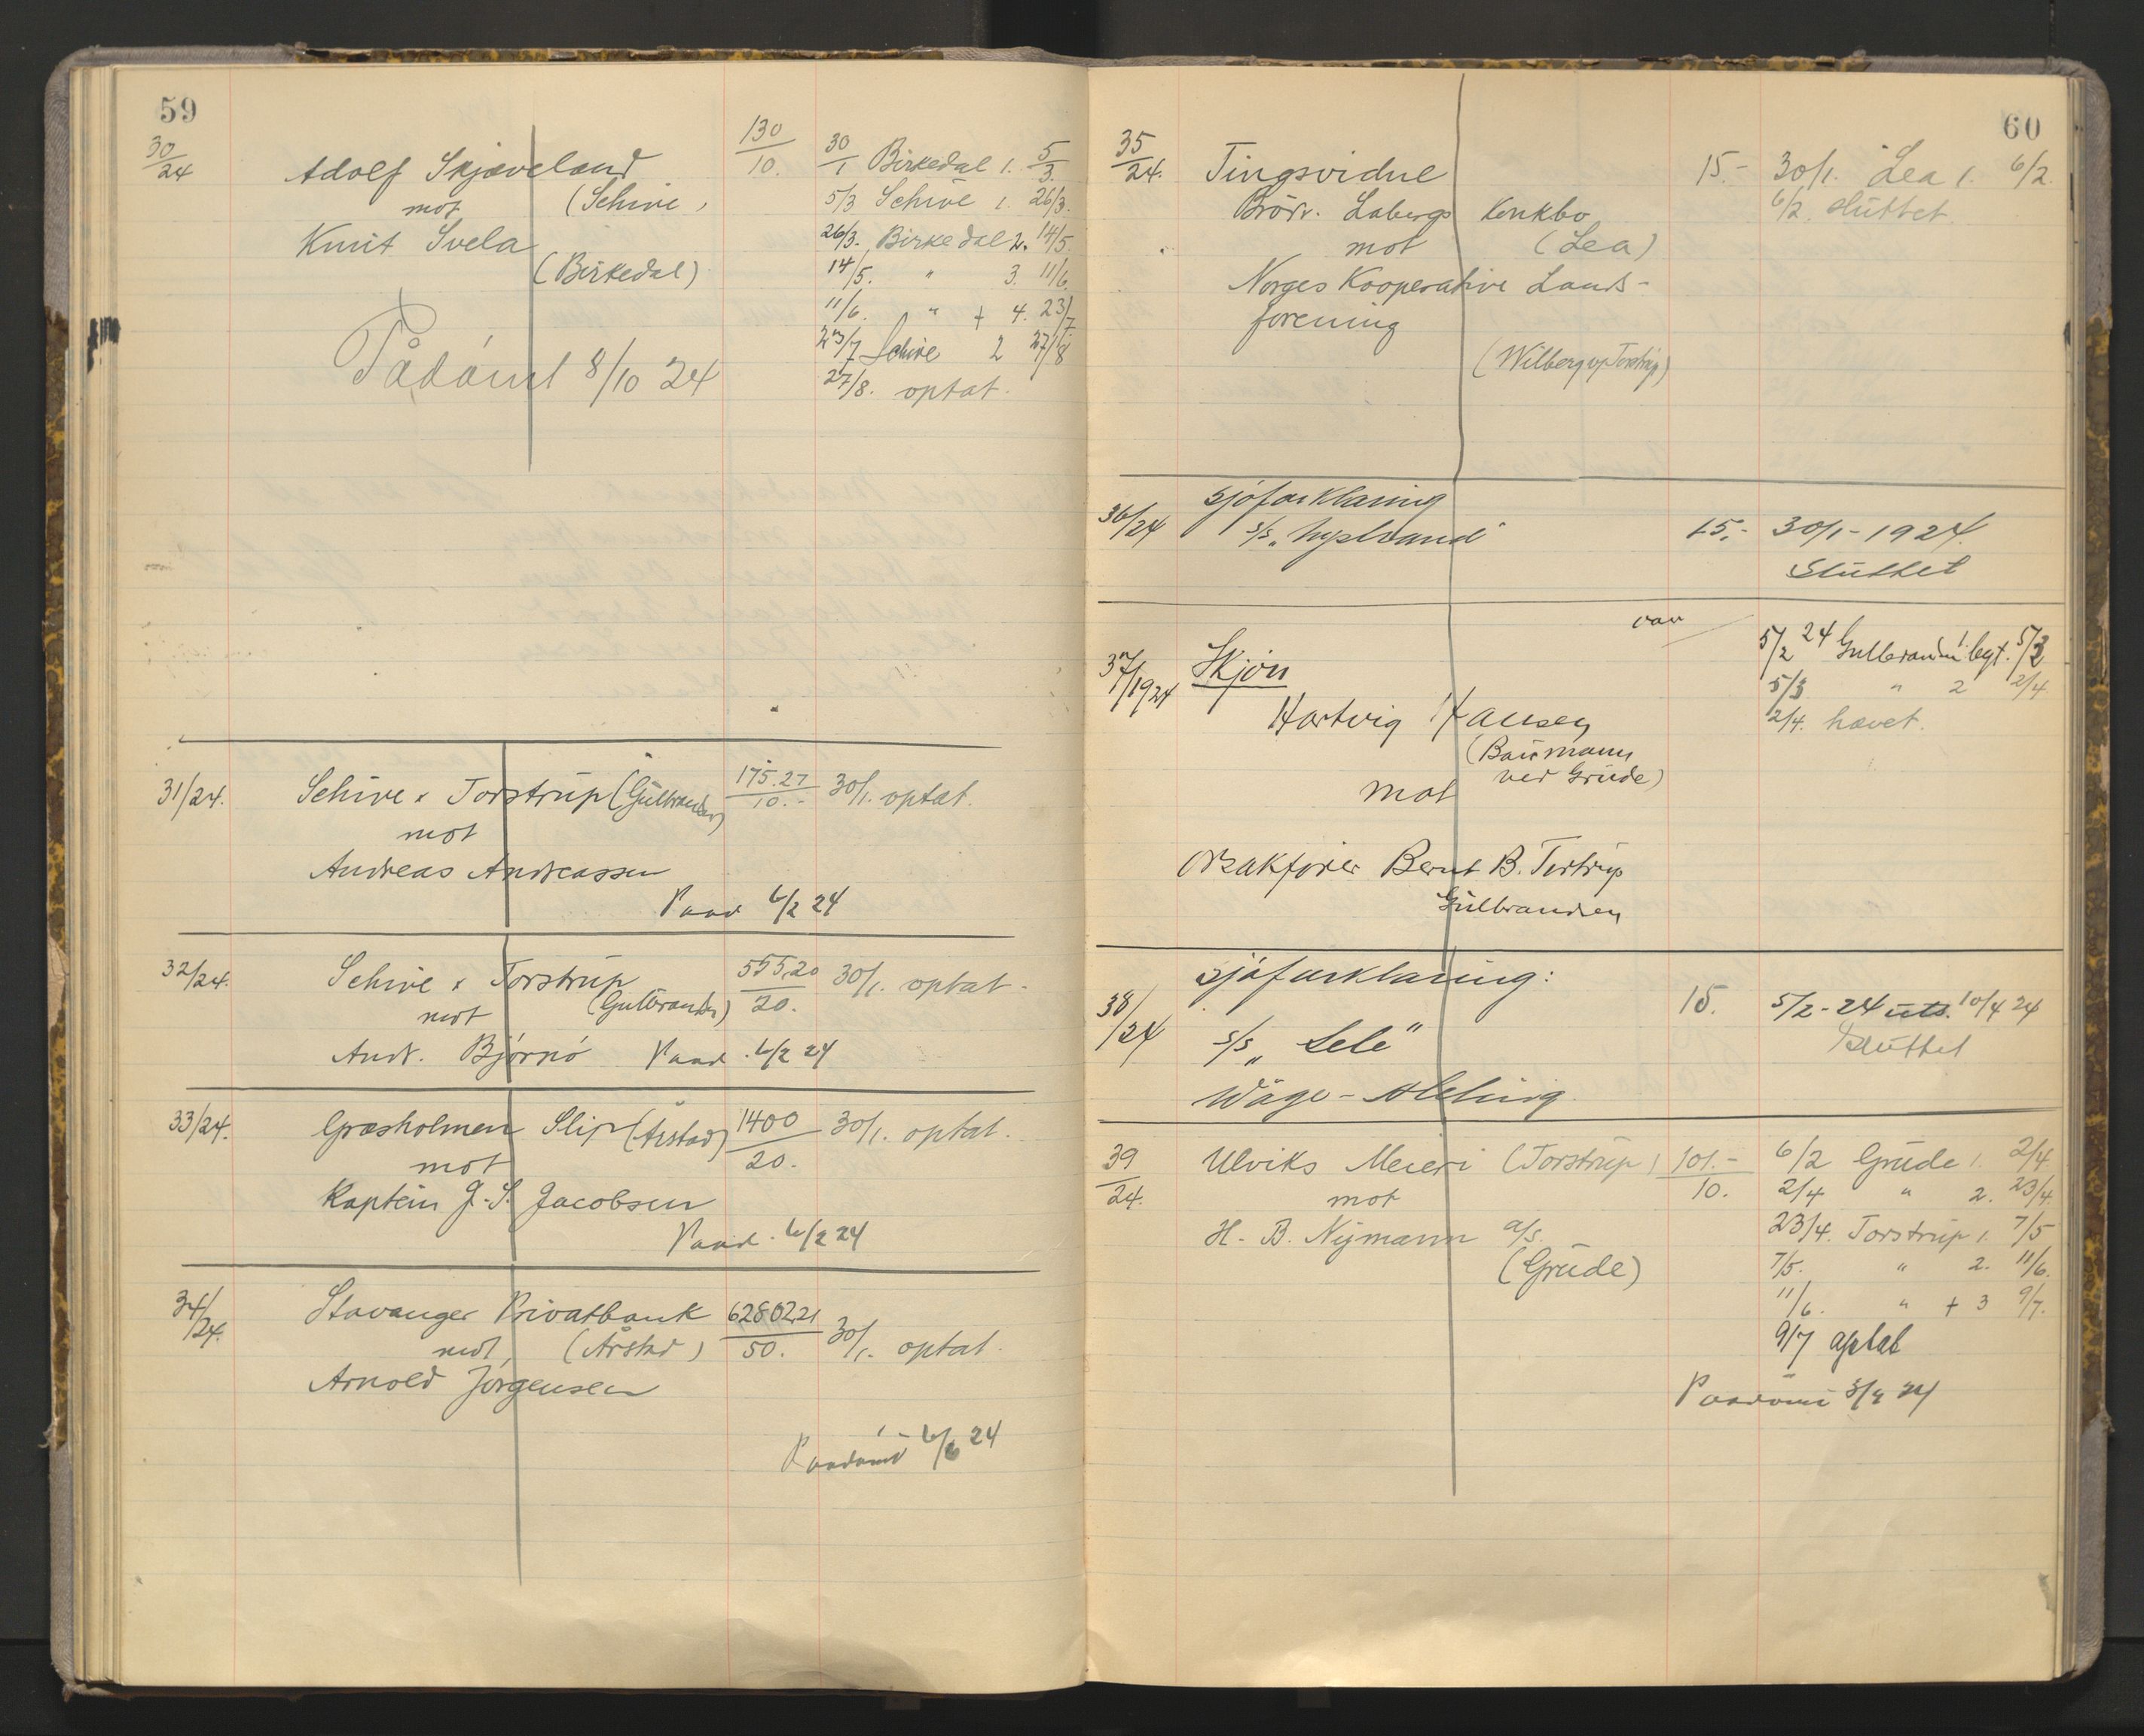 59
30/24 Adolf Skjæveland 130/10. 30/1 Birkedal 1. 5/3.
mot (Schive) 5/3 Schive 1. 26/3.
Knut Svela 26/3. Birkedal 2. 14/5
(Birkedal) 14/5. " 3. 11/6.
11/6. " + 4. 23/7.
23/7 Schive 2 27/8
Pådömt 8/10 24 27/8. optat.
31/24. Schive & Torstrup (Gulbrandsen) 175.27/10.- 30/1. optat.
mot
Andreas Andreassen
Paad 6/2 24
32/24. Schive & Torstrup 555,20/20. 30/1. optat.
mot (Gulbrandsen)
Andr. Bjørnö Paad. 6/2 24
33/24. Græsholmen Slip (Årstad) 1400/20. 30/1. optat.
mot
Kaptein J. S. Jacobsen
Paad. 6/2 24
34/24. Stavanger Privatbank 62802,21/50. 30/1. optat.
mot (Årstad)
Arnold Jörgensen
Paadömt 6/2 24
60
35/24. Tingsvidne 15.- 30/1. Lea 1. 6/2.
Brödr. Labergs konkbo 6/2. sluttet
mot (Lea)
Norges Kooperative Lands-
forening
(Wilberg v Torstrup)
36/24 Sjöforklaring
s/s „ 15,- 30/1- 1924.
Sluttet
37/1924 Skjön 5/2 24 Gulbrandsen 1. begt. 5/3
5/3 " 2 2/4
Hartvig Hansen 2/4. hævet.
(Baumann
ved Grude)
mot
Orsakförer Bernt B. Tortrup
Gulbrandsen
Sjöforklaring:
38/24 s/s „Sele" 15. 5/2-24 uts. 10/4 24
Sluttet
39/24. Ulviks Meieri (Torstrup) 101.-/10. 6/2 Grude 1. 2/4
mot 2/4 " 2. 23/4.
H. B. Nymann a/s. 23/4. Torstrup 1. 7/5
(Grude) 7/5. " 2. 11/6.
11/6. " + 3 9/7.
9/7 optat
Paadömt 24